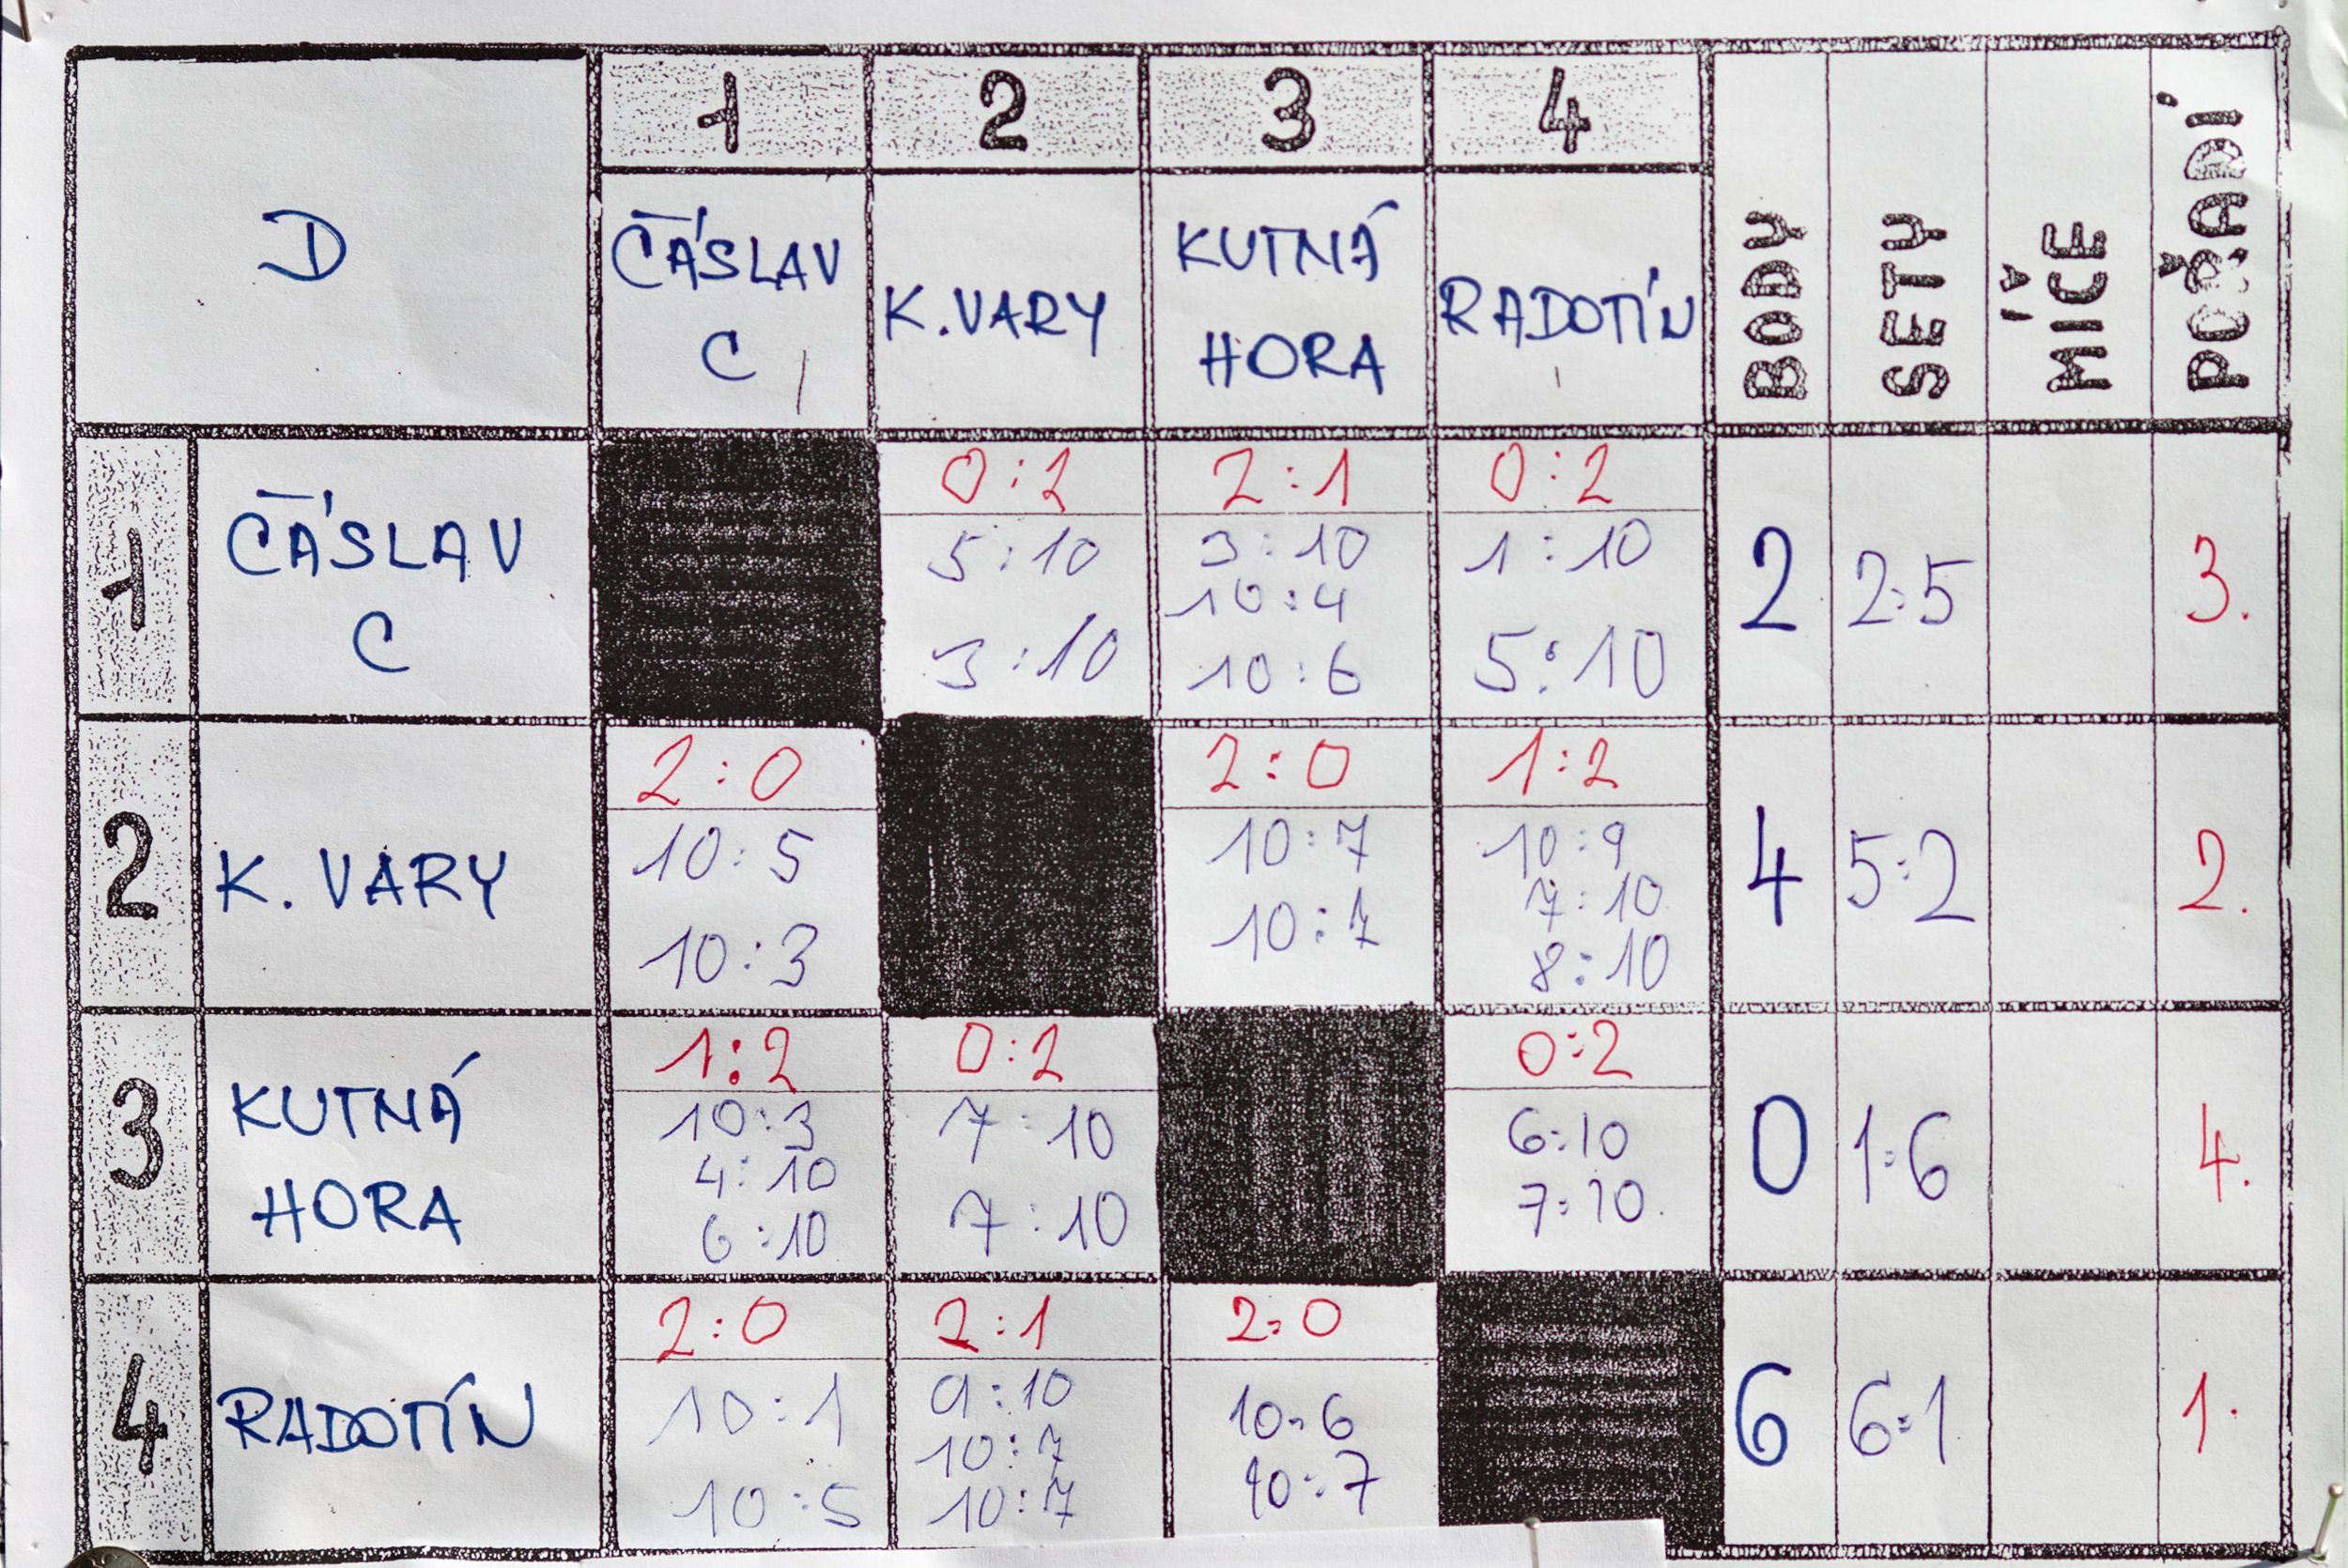 D
1 2 3 4
ČÁSLAV C
K.VARY
KUTNÁ HORA
RADOTÍN
BODY
SETY
MÍČE
POŘADÍ
1
ČÁSLAV
C
0:2 2:1 0:2
5:10 3:10 1:10
10:4
3:10 10:6 5:10
2 2:5 3.
2
K. VARY
2:0 2:0 1:2
10:5 10:7 10:9
7:10
10:3 10:7 8:10
4 5:2 2.
3
KUTNÁ
HORA
1:2 0:2 0:2
10:3 7:10 6:10
4:10
6:10 7:10 7:10
0 1:6 4.
4
RADOTÍN
2:0 2:1 2:0
10:1 9:10 10:6
10:7
10:5 10:7 10:7
6 6:1 1.